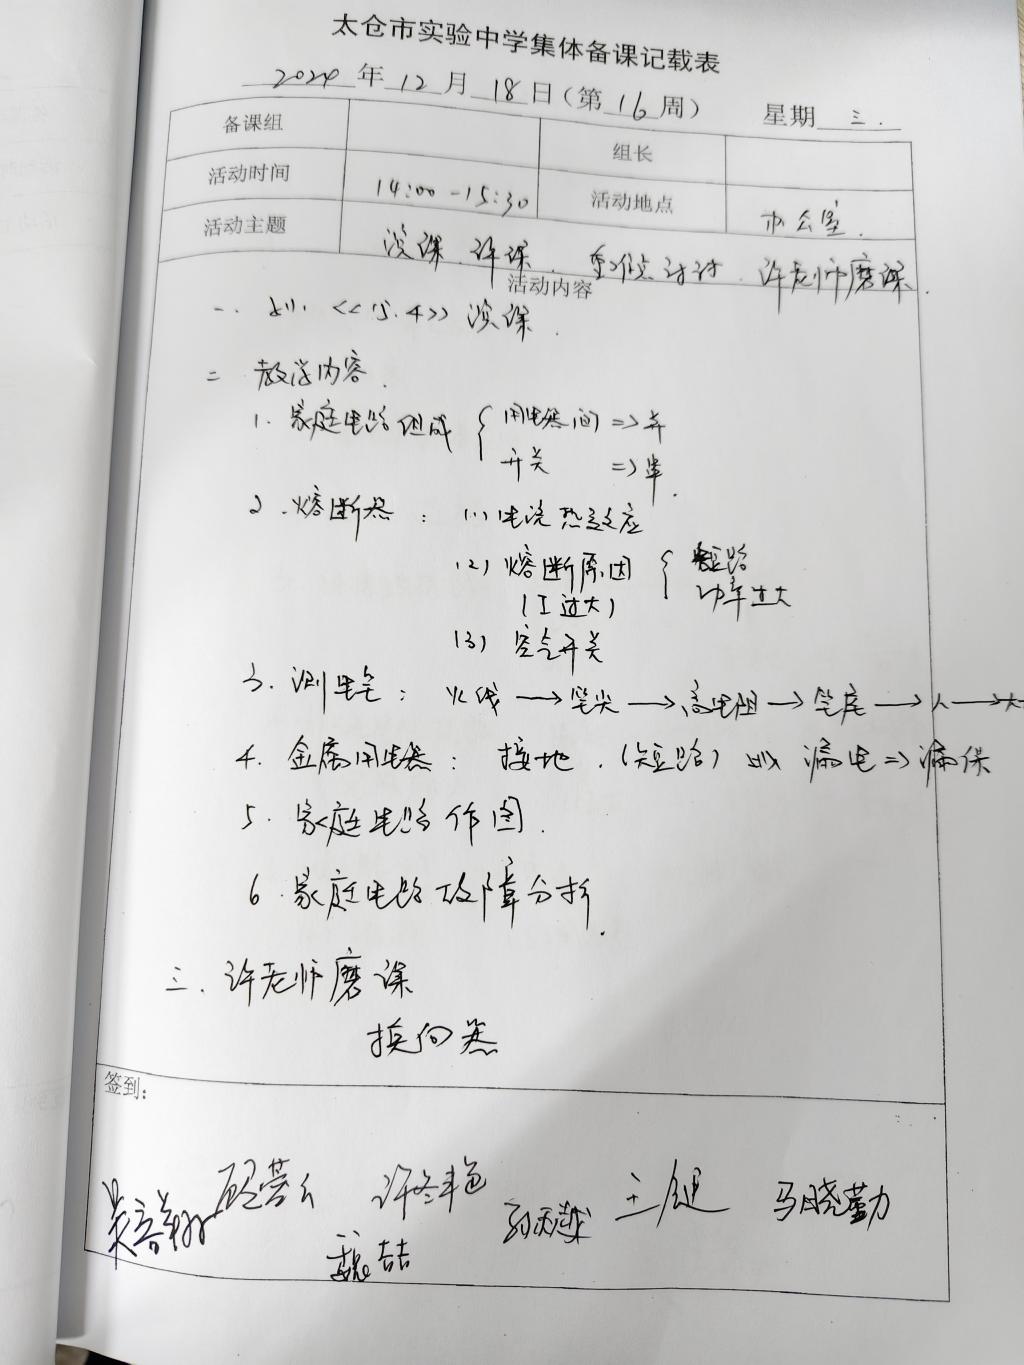 太仓市实验中学集体备课记载表
2024年12月18日(第16周) 星期三.
备课组 组长
活动时间 14:00-15:30 活动地点 办公室.
活动主题 演课.评课. 重难点讨论.许老师磨课.
活动内容
一. 《15.4》演课.
二 教学内容.
1. 家庭电路组成 { 用电器间 => 并
开关 => 串.
2. 熔断器: (1) 电流热效应
(2) 熔断原因 { 短路
(I过大) 功率过大
(3) 空气开关
3. 测电笔: 火线→笔尖→高电阻→笔尾→人→大
4. 金属用电器: 接地.(短路) 漏电=>漏保
5. 家庭电路作图.
6. 家庭电路故障分析.
三. 许老师磨课
换向器
签到:
许冬艳 王健 马晓勤
魏喆